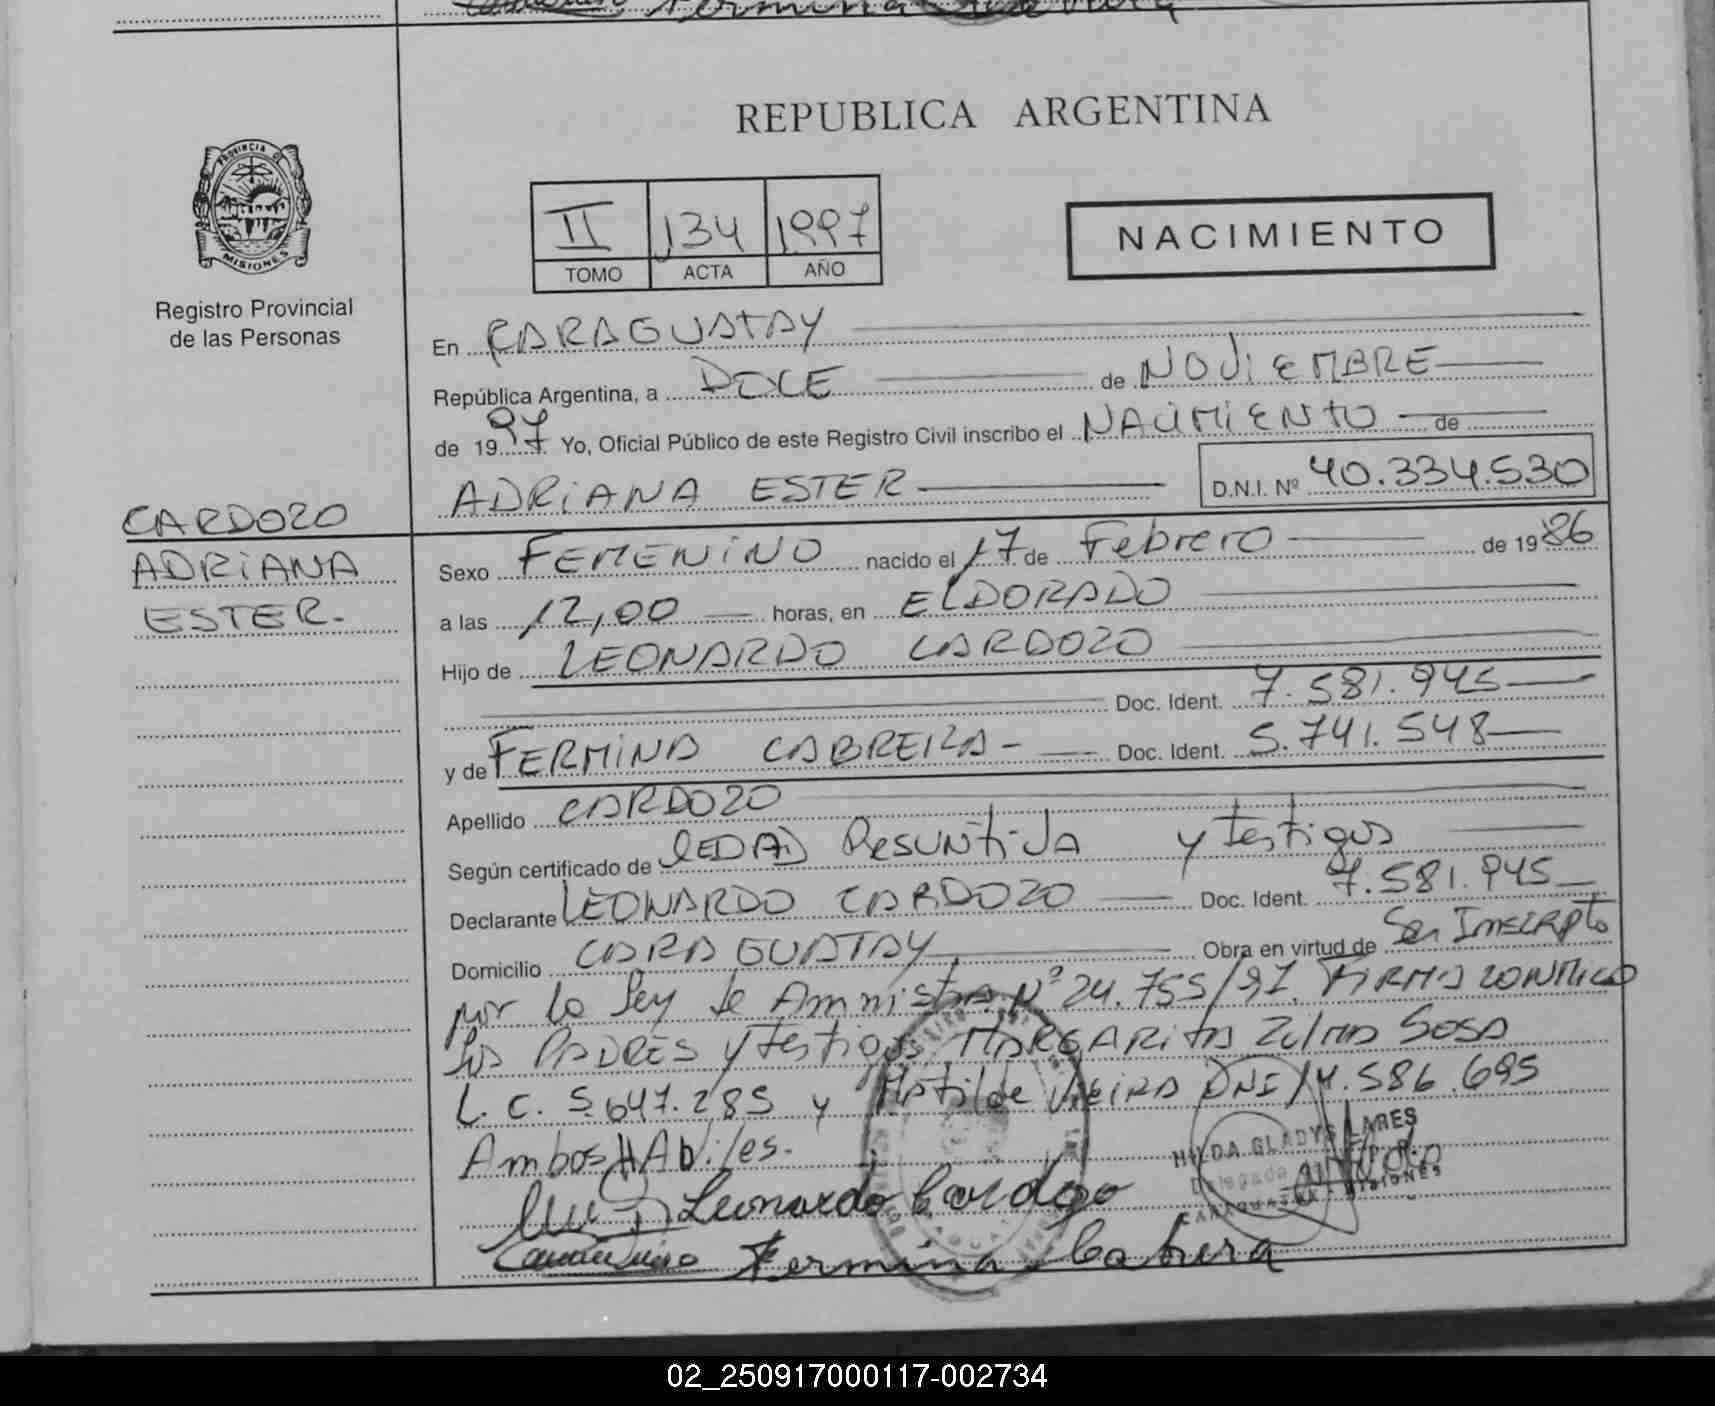 REPUBLICA ARGENTINA
PROVINCIA DE
MISIONES
Registro Provincial
de las Personas
II 134 1997
TOMO ACTA AÑO
NACIMIENTO
En CARAGUATAY
República Argentina, a DOCE de NOVIEMBRE
de 1997 Yo, Oficial Público de este Registro Civil inscribo el NACIMIENTO de
ADRIANA ESTER D.N.I. Nº 40.334.530
CARDOZO
ADRIANA
ESTER.
Sexo FEMENINO nacido el 17 de Febrero de 1986
a las 12,00 horas, en ELDORADO
Hijo de LEONARDO CARDOZO
Doc. Ident. 7.581.945
y de FERMINA CABRERA - Doc. Ident. 5.741.548
Apellido CARDOZO
Según certificado de EDAD Presuntiva y testigos
Declarante LEONARDO CARDOZO Doc. Ident. 7.581.945
Domicilio CARAGUATAY Obra en virtud de Ser Inscripto
por la ley de Amnistia Nº 24.755/97. FIRMA CONMIGO
los PADRES y testigos MARGARITA Zulma SOSA
L.C. 5.647.285 y Matilde VIEIRA DNI 14.586.695
Ambos HABiles.
HILDA GLADYS LARES
Delegada
CARAGUATAY - MISIONES
Leonardo Cardozo
Fermina Cabrera
02_250917000117-002734